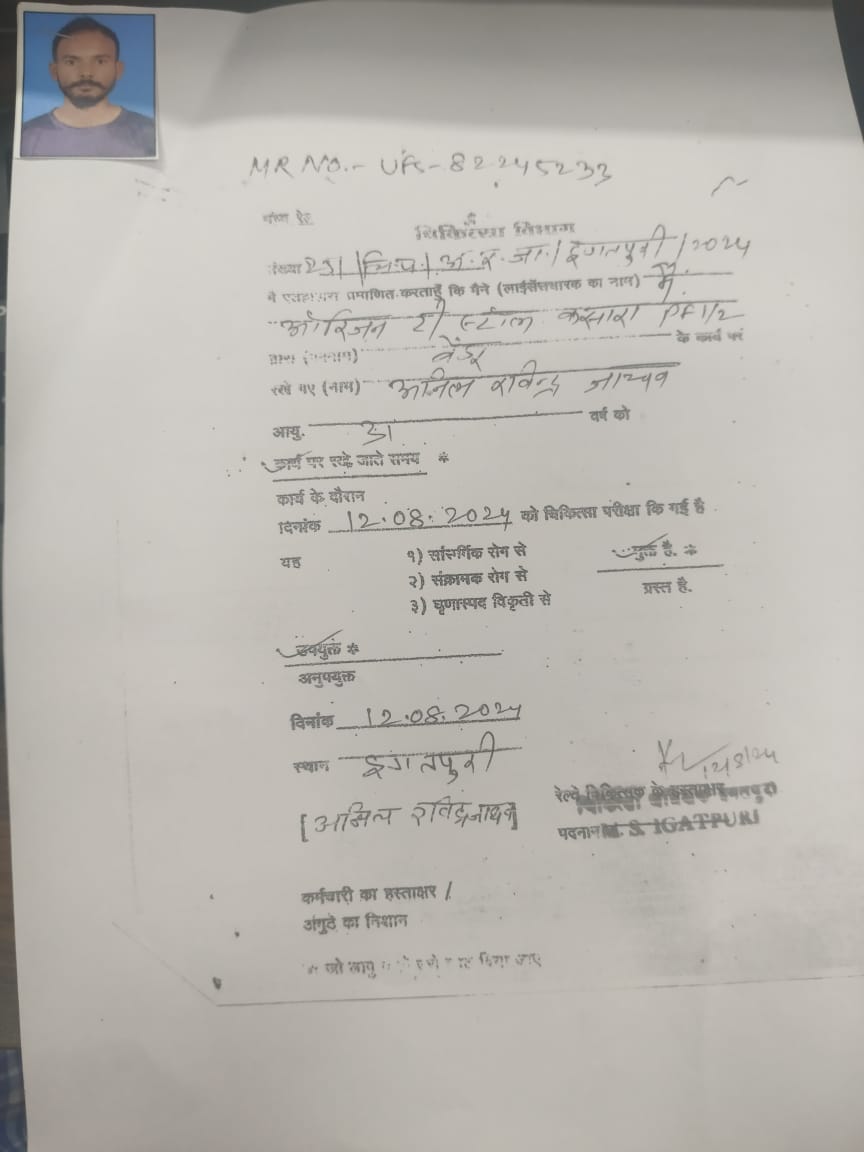 MR NO.- UFS-82245233
मध्य रेल
चिकित्सा विभाग
संख्या 23/चि.प./अ.रे.जा./इगतपुरी/2024
प्रमाणित करता हूँ कि मैने (लाईसेंसधारक का नाम) मे.
ओरिजन टी स्टॉल कसारा PF1/2
वेंडर के कार्य पर
रखे गए (नाम) अनिल रविन्द्र जाधव
आयु. 31 वर्ष को
कार्य पर रखे जाते समय *
कार्य के दौरान
दिनांक 12.08.2024 को चिकित्सा परीक्षा कि गई है
यह १) सांसर्गिक रोग से मुक्त है. *
२) संक्रामक रोग से
३) घृणास्पद विकृती से ग्रस्त है.
उपयुक्त *
अनुपयुक्त
दिनांक 12.08.2024
स्थान इगतपुरी
12/8/24
रेल्वे चिकित्सक के हस्ताक्षर
[अनिल रविंद्र जाधव]
पदनाम M. S. IGATPURI
कर्मचारी का हस्ताक्षर /
अंगुठे का निशान
* जो लागु